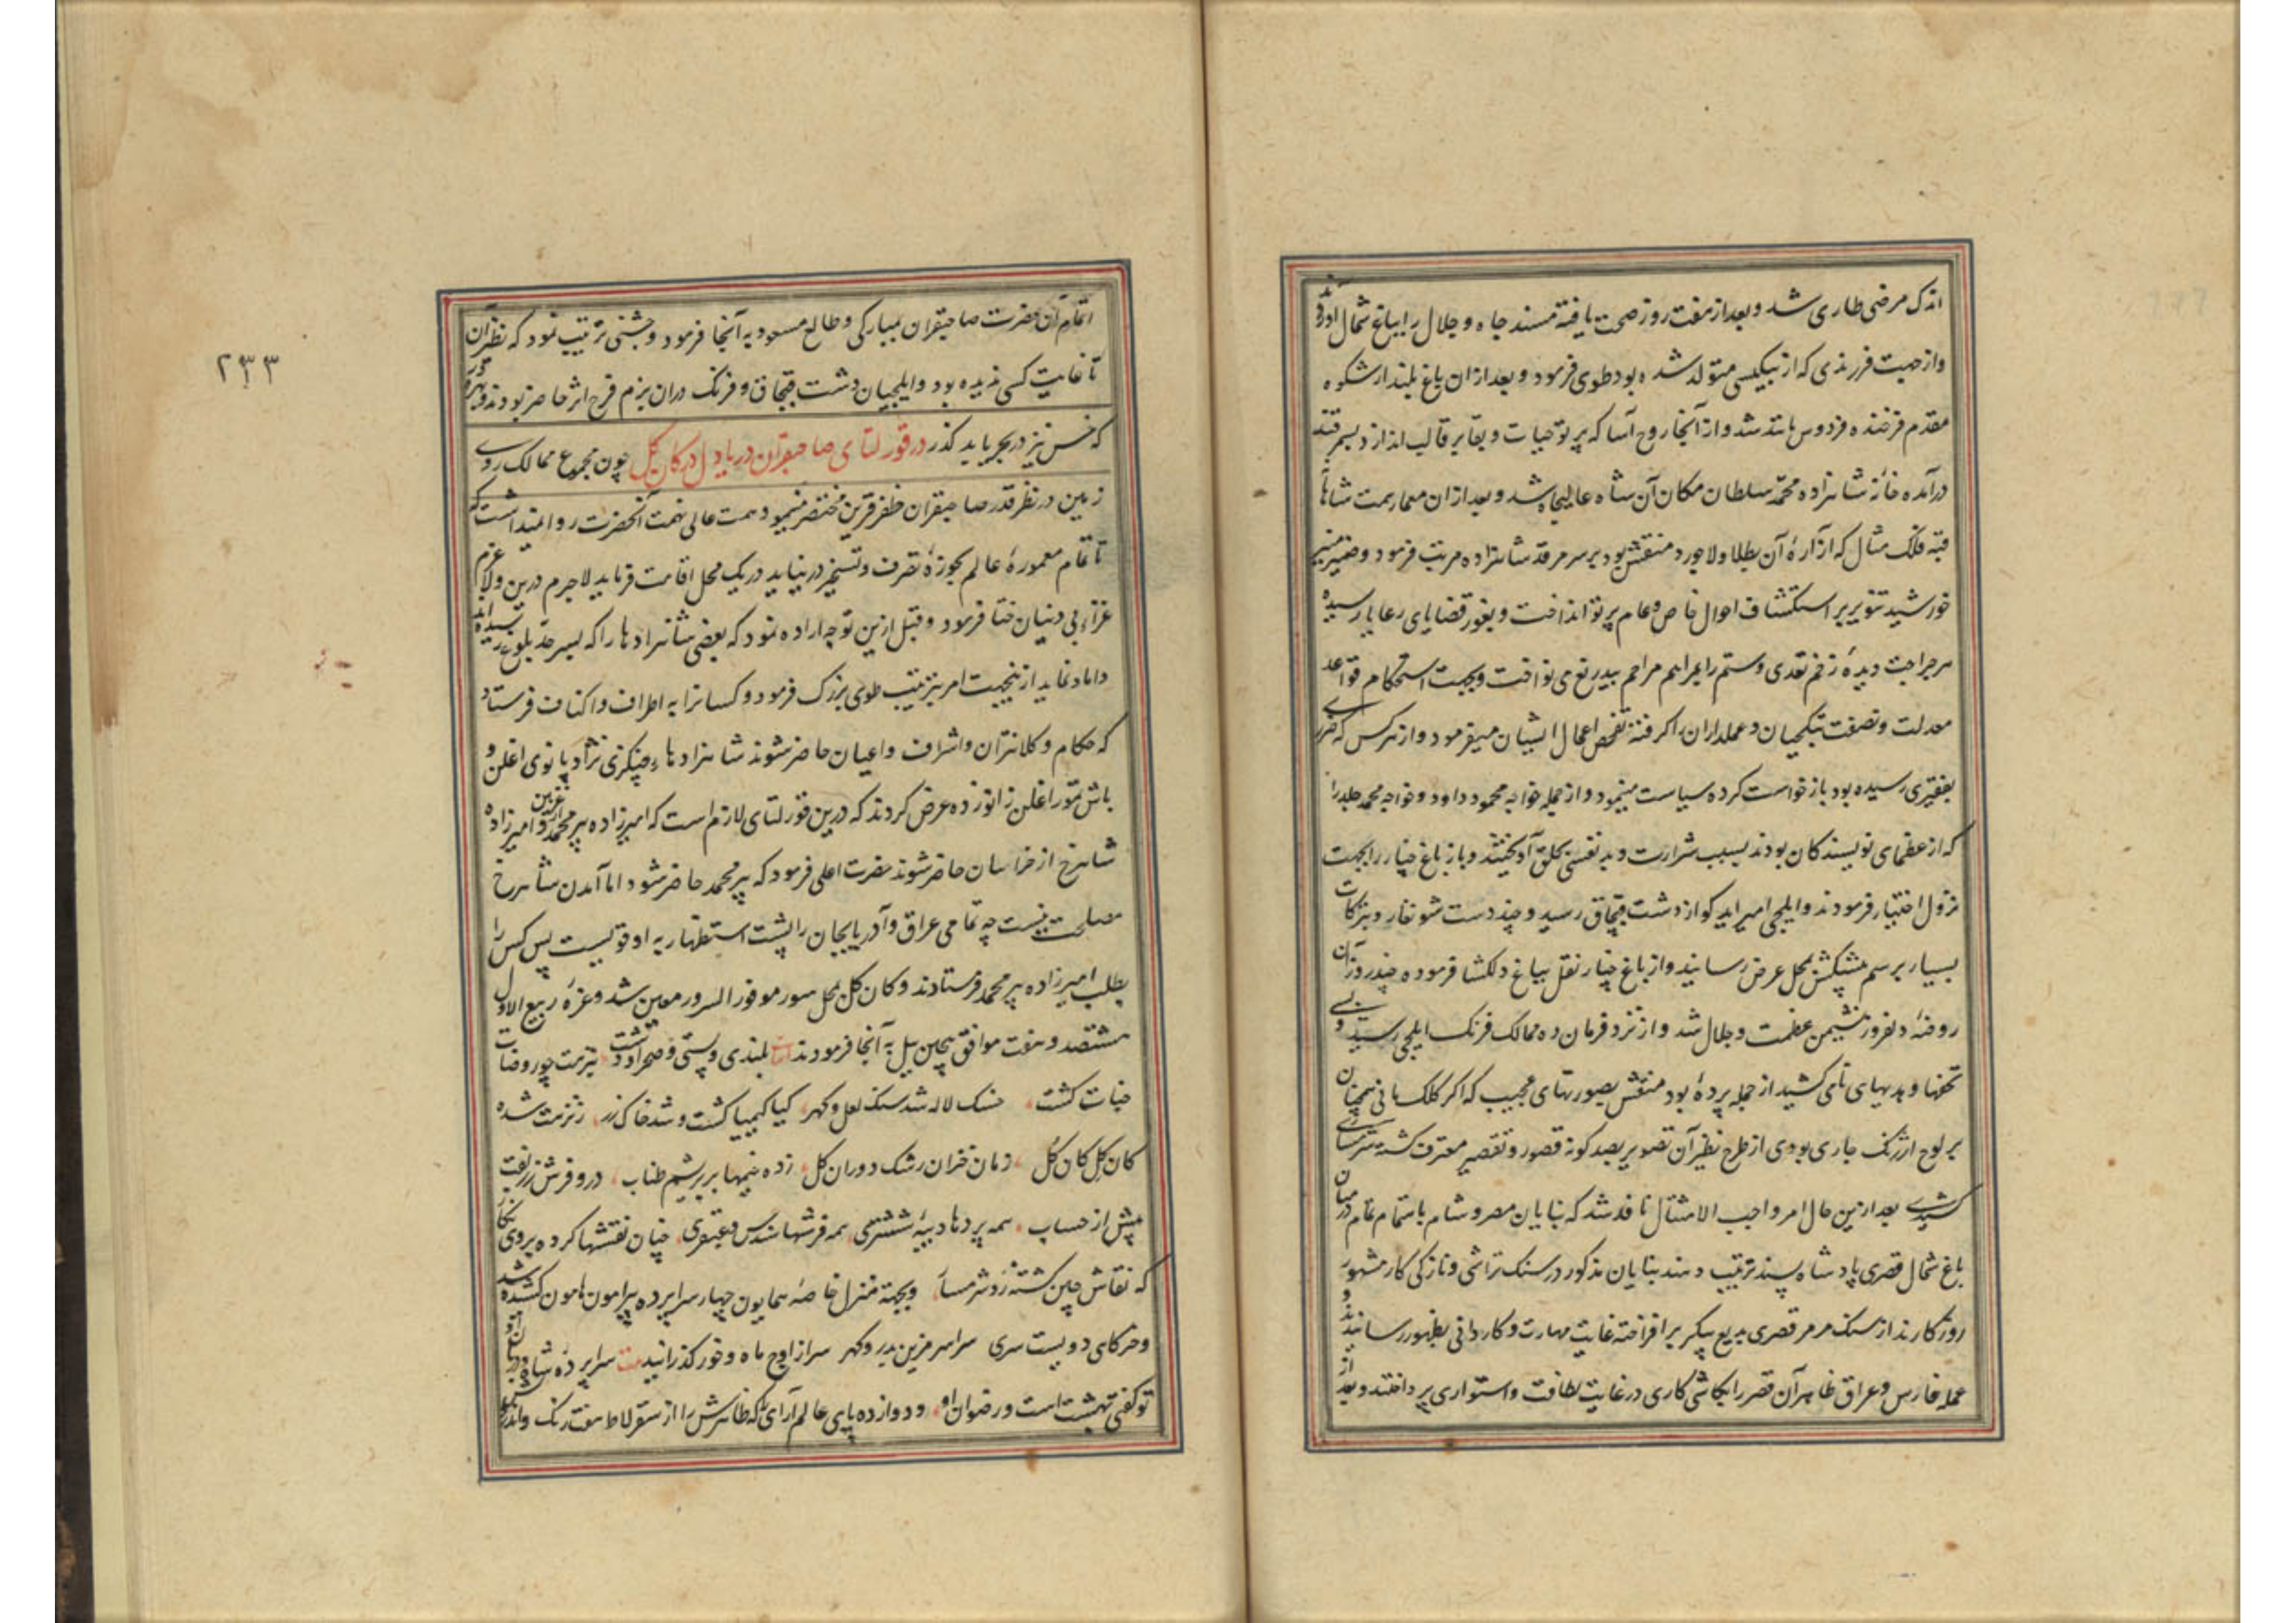 اندک مرضی طاری شد و بعد از هفت روز صحت یافته مسند جاه و جلال را بباغ شمال آورد
و از جهت فرزندی که از بیکیسی متولد شده بود طوی فرمود و بعد از ان باغ بلند از شکوه
مقدم فرخنده فردوس مانند شد و از آنجا روح آسا که پرتو حیات و بقا بر قالب اندازد بسمرقند
درآمده خانه شاهزاده محمد سلطان مکان آن شاه عالیجاه شد و بعد از ان معمار همت شاهانه
قبه فلک مثال که ازارهٔ آن بطلا و لاجورد منقش بود بر سر مرقد شاهزاده مرتب فرمود و ضمیر منیر
خورشید تنویر بر استکشاف احوال خاص و عام پرتو انداخت و بغور قضایای رعایا رسیده
هر جراحت دیدهٔ زخم تعدی و ستم را بمراهم مراحم بیدریغ می نواخت و بجهت استحکام قواعد
معدلت و نصفت بتکچیان و عملداران را گرفته تفحص اعمال ایشان میفرمود و از هر کس که ضرری
بفقیری رسیده بود بازخواست کرده سیاست مینمود و از جمله خواجه محمود داود و خواجه محمد جلد را
که از عظمای نویسندکان بودند بسبب شرارت و بد نفسی بحلق آویختند و باز باغ چنار را بجهت
نزول اختیار فرمودند و ایلچی امیر ایدکو از دشت قبچاق رسید و چند دست شونقار و تبرکات
بسیار برسم پیشکش بمحل عرض رسانیدند و از باغ چنار نقل بباغ دلکشا فرموده چند روز آن
روضهٔ دلفروز نشیمن عظمت و جلال شد و از نزد فرمان ده ممالک فرنک ایلچی رسید و بسی
تحفها و هدیهای نامی کشید از جمله پردهٔ بود منقش بصورتهای عجیب که اکر کلک مانی همچنان
بر لوح ارژنک جاری بودی از طرح نظیر آن تصویر بصد کونه قصور و تقصیر معترف کشته شرمساری
کشیدی بعد از این حال امر واجب الامتثال نافذ شد که بنایان مصر و شام باستمام تمام در میان
باغ شمال قصری پادشاه پسند ترتیب دهند بنایان مذکور در سنک تراشی و نازکی کار مشهور
روزکارند از سنک مرمر قصری بدیع پیکر برافراخته غایت مهارت و کاردانی بظهور رسانیدند و
عمله فارس و عراق ظاهر آن قصر را بکاشی کاری در غایت لطافت و استواری پرداختند و بعد از
اتمام آن حضرت صاحبقران بمبارکی و طالع مسعود به آنجا فرمود و جشنی ترتیب نمود که نظیر آن
تا غایت کسی ندیده بود و ایلچیان دشت قبچاق و فرنک دران بزم فرح اثر حاضر بودند
که خس نیز در بحر یابد کذر در قورلتای صاحبقران دریا دل در کان کل چون مجموع ممالک روی
زمین در نظر قدر صاحبقران ظفر قرین مختصر مینمود همت عالی نهمت آنحضرت روا نمیداشت که
تا تمام معمورهٔ عالم بحوزهٔ تصرف و تسخیر در نیاید در یک محل اقامت فرماید لاجرم درین ولا عزم
غزاء بی دینان ختا فرمود و قبل ازین توجه اراده نمود که بعضی شاهزادها را که بسر حد بلوغ رسیده اند
داماد نماید ازینجهت امر بترتیب طوی بزرک فرمود و کسانرا به اطراف و اکناف فرستاد
که حکام و کلانتران و اشراف و اعیان حاضر شوند شاهزادهاء چنکزی نژاد بانوی اغلن و
باش تمور اغلن زانو زده عرض کردند که درین قورلتای لازم است که امیرزاده پیر محمد از غزنین و امیرزاده
شاهرخ از خراسان حاضر شوند حضرت اعلی فرمود که پیر محمد حاضر شود اما آمدن شاهرخ
مصلحت نیست چه تمامی عراق و آذربایجان را پشت استظهار به او قویست پس کس را
بطلب امیرزاده پیر محمد فرستادند و کان کل محل سور موفور السرور معین شد و غرهٔ ربیع الاول
هشتصد و هفت موافق پیچین ییل به آنجا فرمودند بلندی و پستی و صحرا و دشت بنزهت چو روضات
جنات کشت خسک لاله شد سنک لعل و کهر کیا کیمیا کشت و شد خاک زر ز نزهت شده
کان کل کان کل زمان خزان رشک دوران کل زده خیمها بر بریشم طناب درو فرش زربفت
بیش از حساب همه پردها دیبهٔ ششتری همه فرشها سندس و عبقری چنان نقشها کرده بر وی نکار
که نقاش چین کشته زو شرمسار و بجهة منزل خاصهٔ همایون چهار سراپرده پیرامون هامون کشیده شد
و خرکای دویست سری سراسر مزین بدر و کهر سر از اوج ماه و خور کذرانید سراپردهٔ شاه و
تو کفتی بهشت است و رضوان او و دوازده پایی عالم آرای که ظاهرش را از سقرلاط هفت رنک و اندرون
۲۳۳